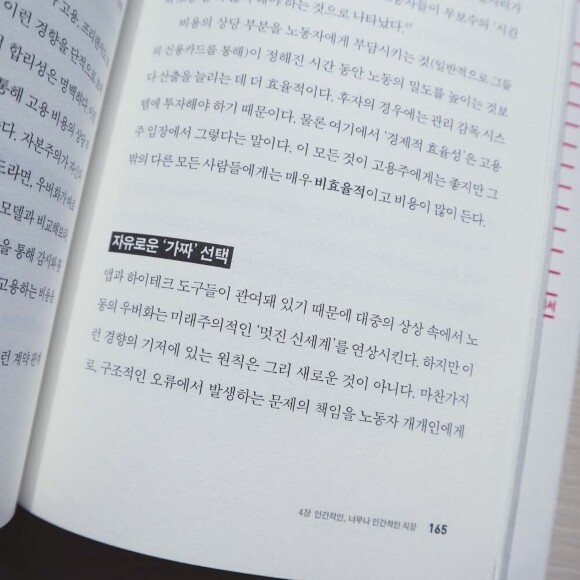 고용, 프리랜서
이런 경향을 단적으로
합리성은 명백하다.
통해 고용 비용의 상당
다. 자본주의가 자신의
드라면, 우버화가 바로
모델과 비교해보라
을 통해 감시와
고용하는 비용을
런 계약 관계
무보수의 '시간
하는 것으로 나타났다.
비용의 상당 부분을 노동자에게 부담시키는 것(일반적으로 그들
의 신용카드를 통해)이 정해진 시간 동안 노동의 밀도를 높이는 것보
다 산출을 늘리는 데 더 효율적이다. 후자의 경우에는 관리 감독 시스
템에 투자해야 하기 때문이다. 물론 여기에서 '경제적 효율성'은 고용
주 입장에서 그렇다는 말이다. 이 모든 것이 고용주에게는 좋지만 그
밖의 다른 모든 사람들에게는 매우 비효율적이고 비용이 많이 든다.
자유로운 '가짜' 선택
앱과 하이테크 도구들이 관여돼 있기 때문에 대중의 상상 속에서 노
동의 우버화는 미래주의적인 '멋진 신세계'를 연상시킨다. 하지만 이
런 경향의 기저에 있는 원칙은 그리 새로운 것이 아니다. 마찬가지
로, 구조적인 오류에서 발생하는 문제의 책임을 노동자 개개인에게
4장 인간적인, 너무나 인간적인 직장 165